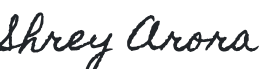 Shrey Arora